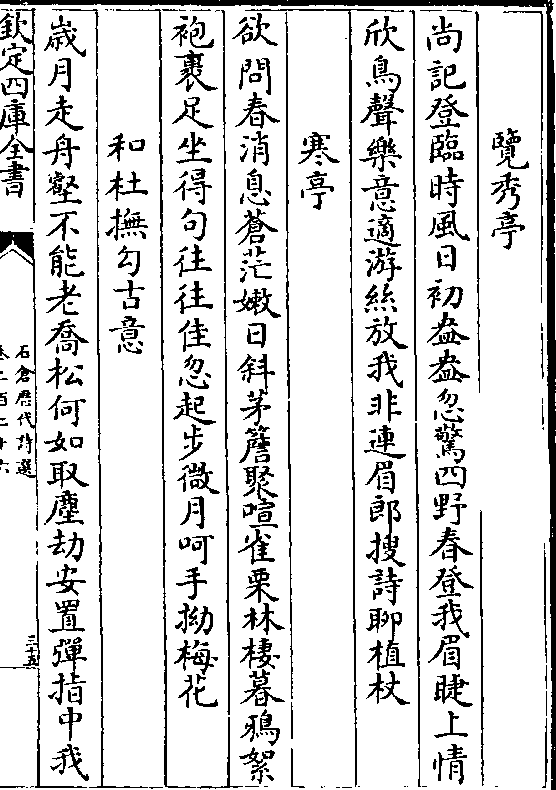 覽秀亭
尚記登臨時風日初盎盎忽驚四野春登我眉睫上情
欣鳥聲樂意適游絲放我非連眉郎搜詩聊植杖
寒亭
欲問春消息蒼茫嫩日斜茅簷聚喧雀栗林棲暮鴉絮
袍裹足坐得句往往佳忽起步微月呵手拗梅花
和杜撫勾古意
歳月走舟壑不能老喬松何如取塵劫安置彈指中我
欽定四庫全書
石倉歷代詩選
卷二百二十六
三十五